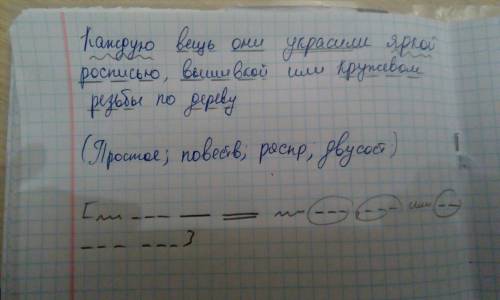 Каждую вещь они украсили яркой
росписью, вышивкой или кружевом
резьбы по дереву
(Простое; повеств; распр, двусост)
или